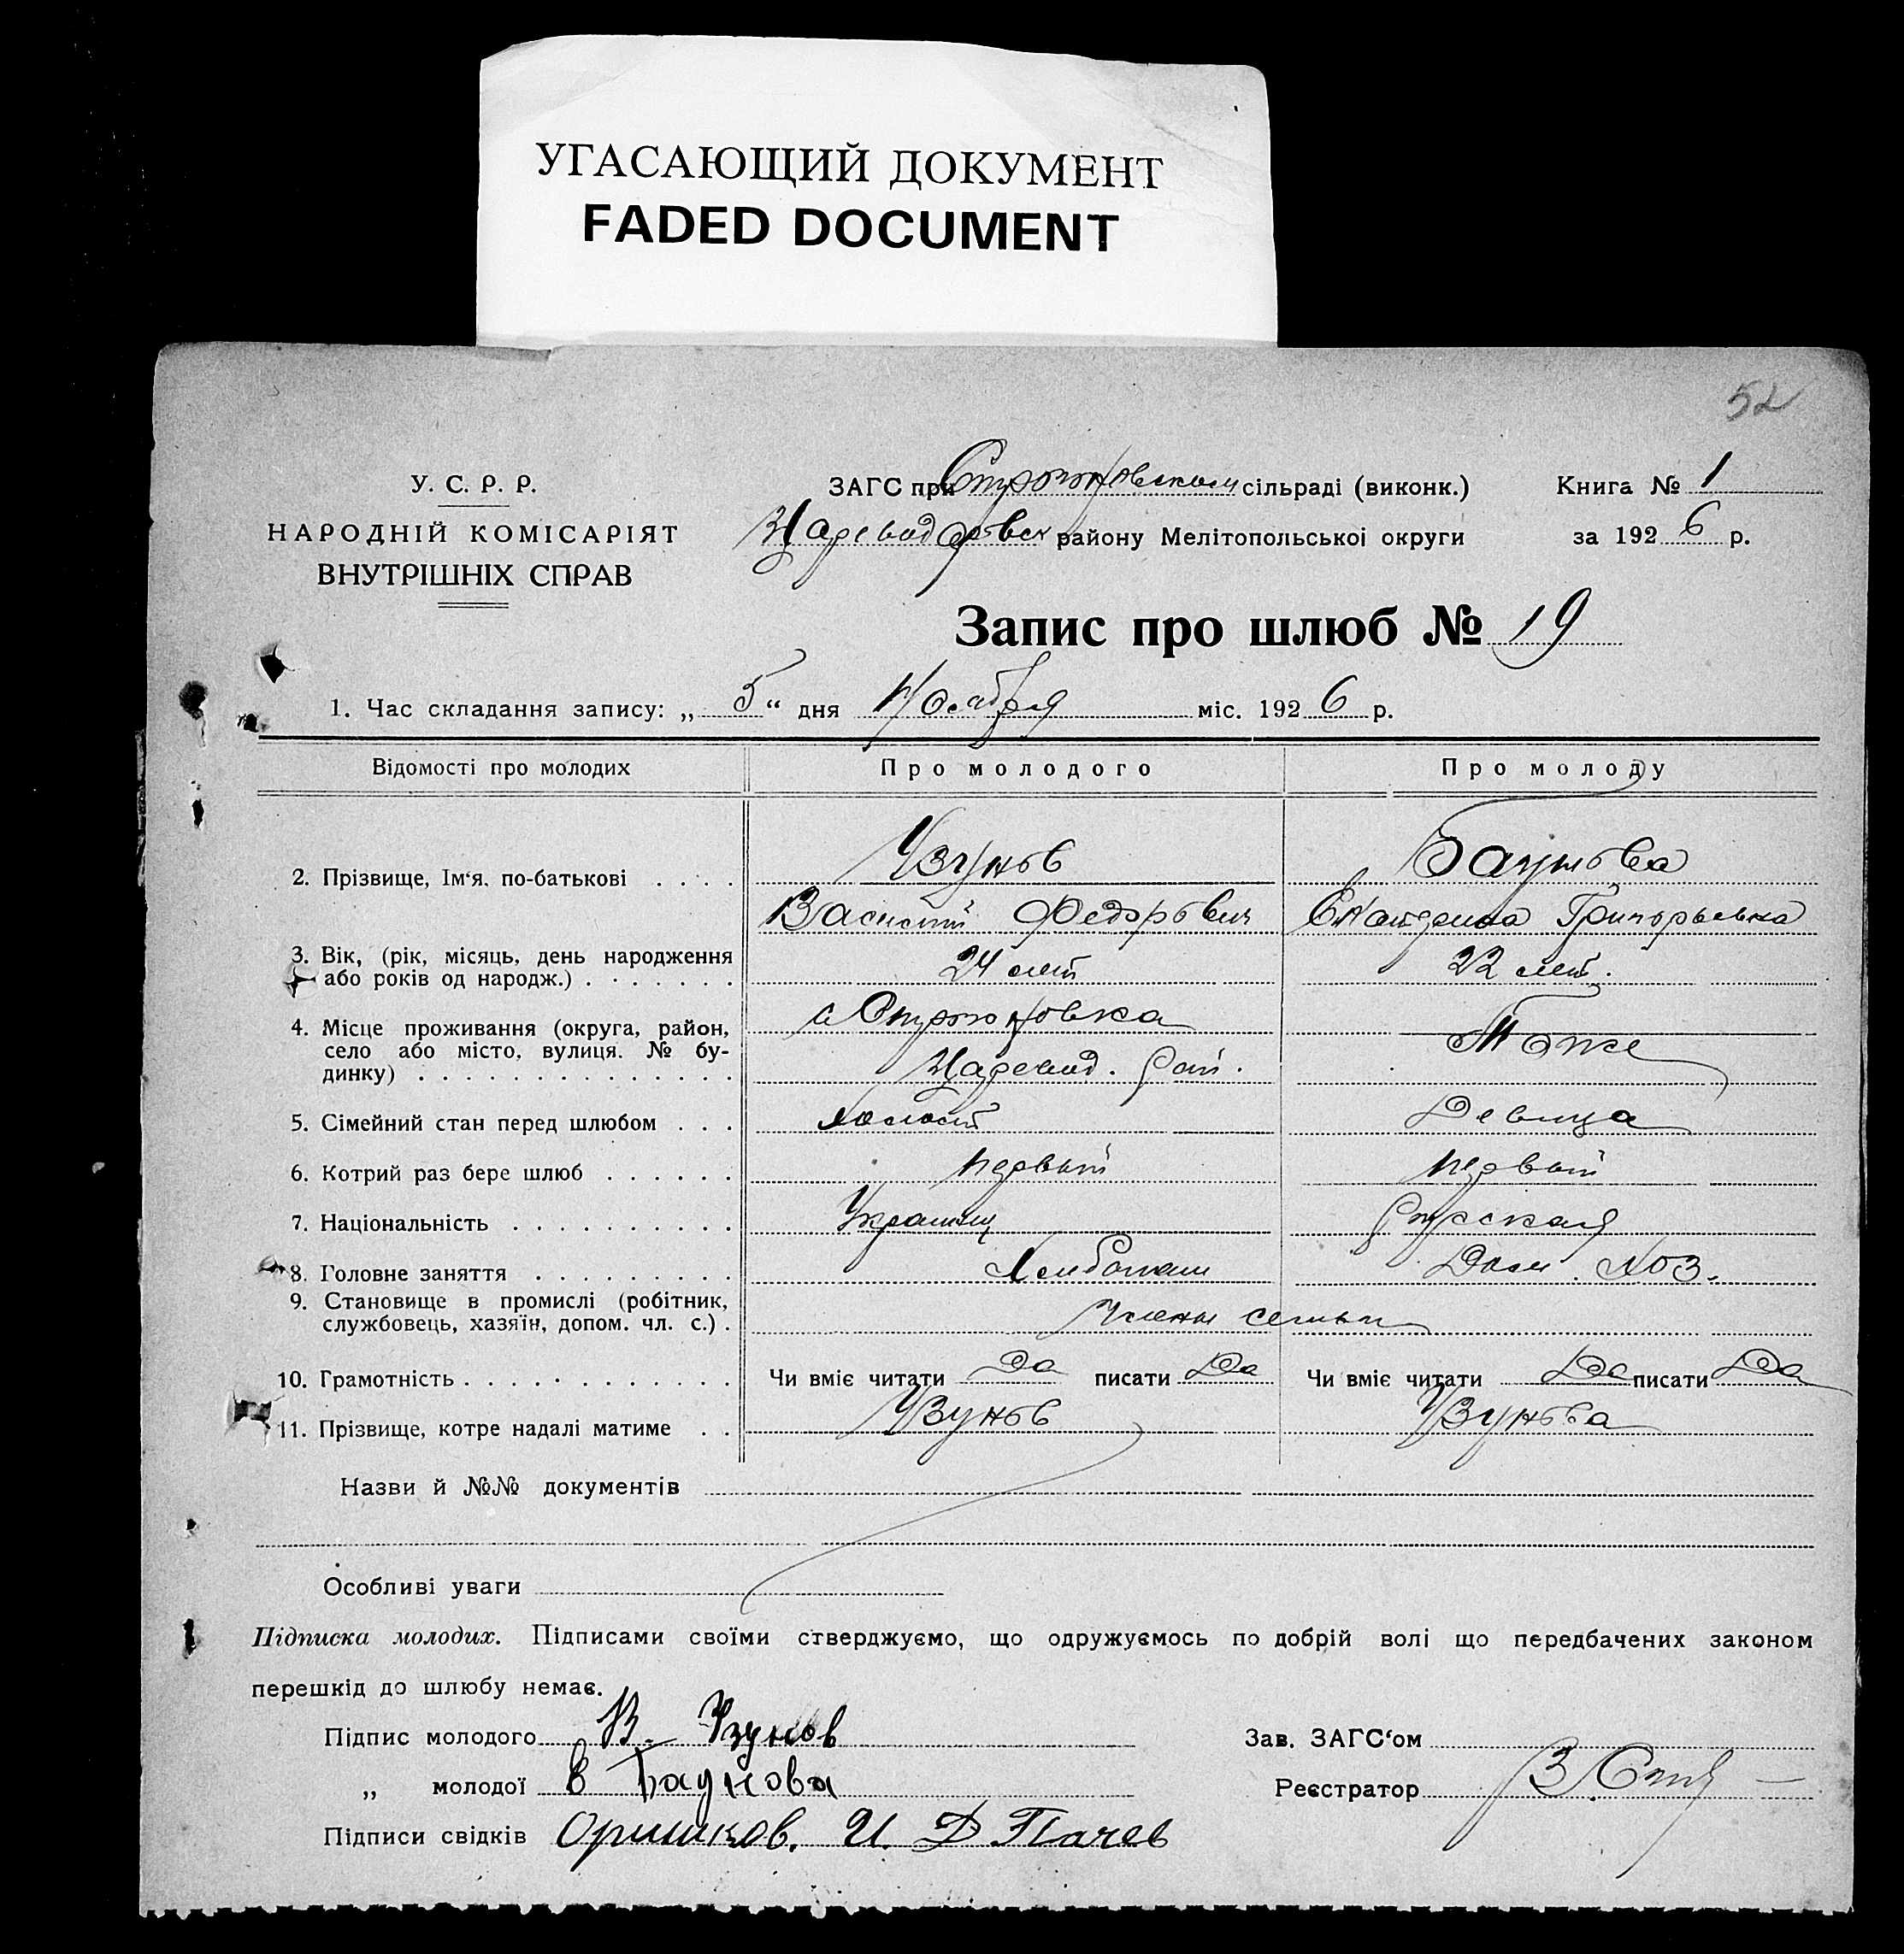 УГАСАЮЩИЙ ДОКУМЕНТ
FADED DOCUMENT
52
У. С. Р. Р.
НАРОДНІЙ КОМІСАРІЯТ
ВНУТРІШНІХ СПРАВ
ЗАГС при Строгоновском сільраді (виконк.)
Цареводаровск району Мелітопольської округи
Книга № 1
за 1926 р.
Запис про шлюб № 19
1. Час складання запису: „ 5 “ дня Ноября міс. 1926 р.
Відомості про молодих Про молодого Про молоду
2. Прізвище, Ім‘я, по-батькові . . . . Узунов
Василий Федорович Екатерина Григорьевна
3. Вік, (рік, місяць, день народження або років од народж.) . . . . . . . 24 лет 22 лет.
4. Місце проживання (округа, район, село або місто, вулиця. № будинку) . . . . . . . . . . . . . с Строгоновка Тоже
Царевод. рай.
5. Сімейний стан перед шлюбом . . . холост Девица
6. Котрий раз бере шлюб . . . . . . первый первый
7. Національність . . . . . . . . . . Украинец Русская
8. Головне заняття . . . . . . . . . Хлебопаш Дом. хоз.
9. Становище в промислі (робітник, службовець, хазяїн, допом. чл. с.) . Члены семьи
10. Грамотність . . . . . . . . . . . . Чи вміє читати Да писати Да Чи вміє читати Да писати Да
11. Прізвище, котре надалі матиме . . Узунов Узунова
Назви й №№ документів
Особливі уваги
Підписка молодих. Підписами своїми стверджуємо, що одружуємось по добрій волі що передбачених законом
перешкід до шлюбу немає.
Підпис молодого В. Узунов
Зав. ЗАГС‘ом
„ молодої
Реєстратор
Підписи свідків И. Д